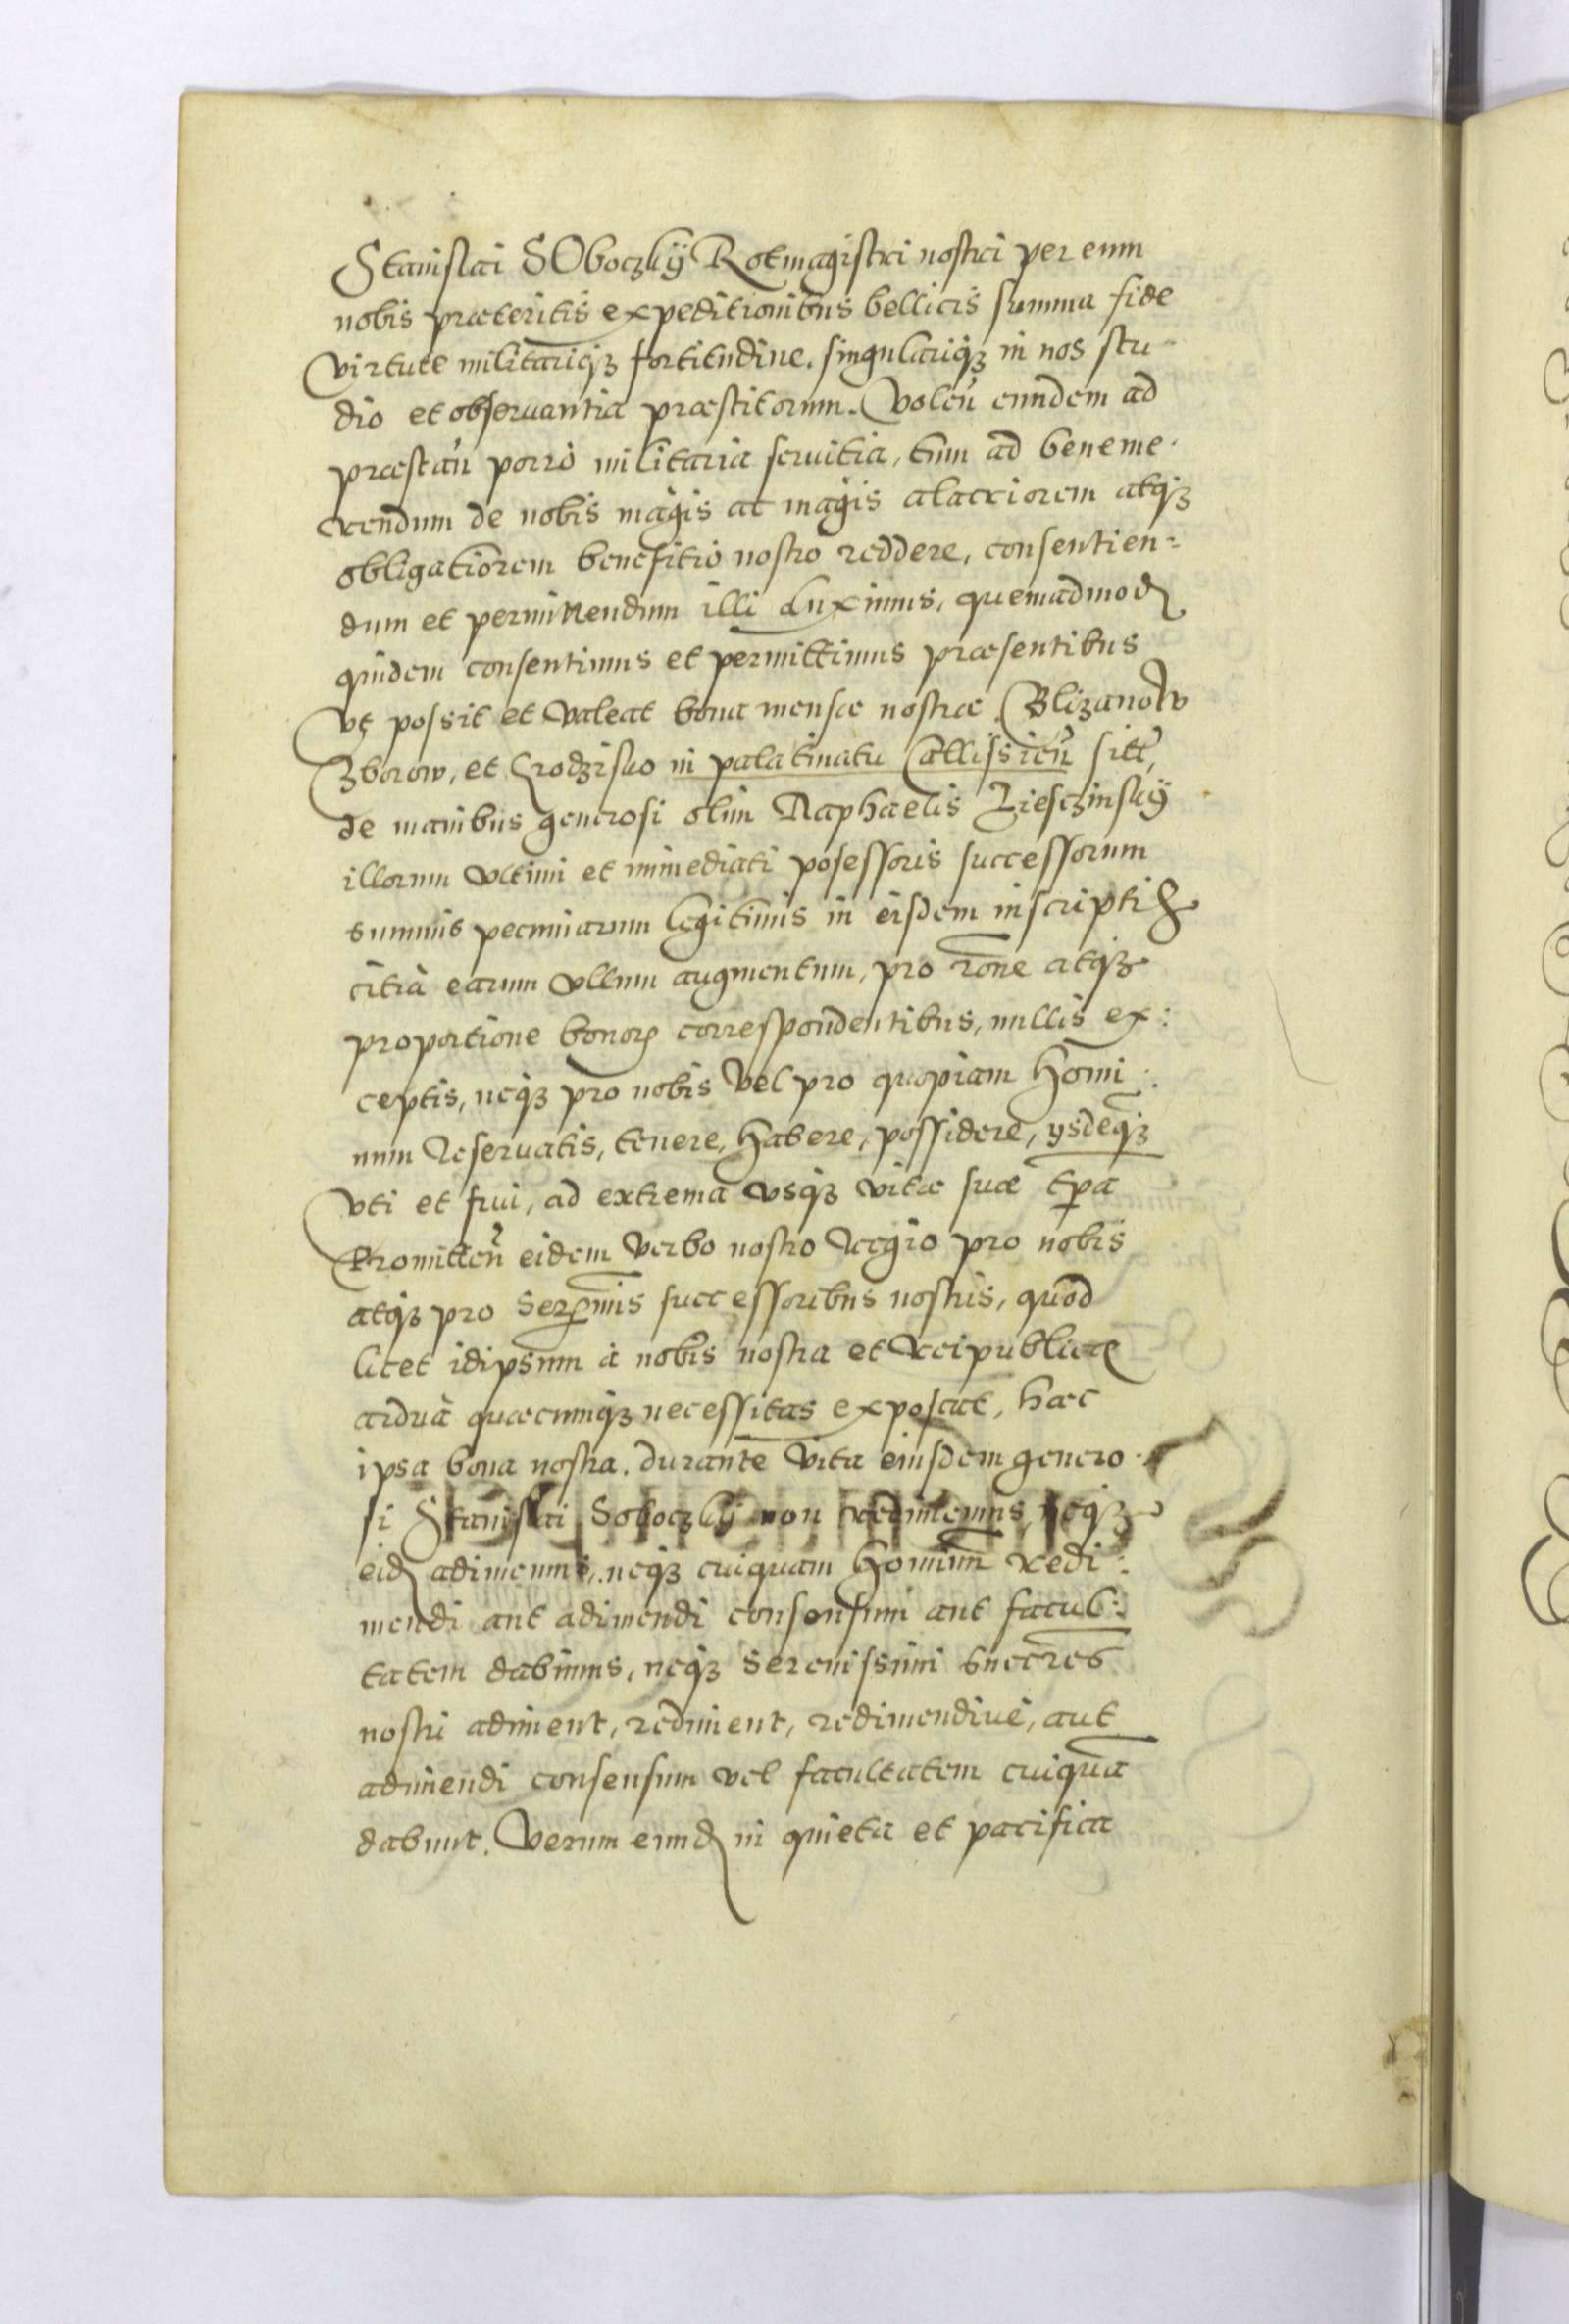 Stanislai SOboczkÿ Rotmagistri nostri per eum
nobis præteritis expeditionibus bellicis summa fide
virtute militariqꝫ fortitudine. singulariqꝫ in nos stu-
dio et obseruantia præstitorum. Voleñ eundem ad
præstañ porrò militaria seruitia, tum ad beneme-
rendum de nobis magis ac magis alacriorem atqꝫ
obligatiorem benefitio nostro reddere, consentien=
dum et permittendum illi duximus, quemadmod
quidem consentimus et permittimus præsentibus
Vt possit et valeat bona mensæ nostræ Blizanow
Zborow, et Grodzisko in palatinatu Callissieñ sitt,
de manibus generosi olim Raphaelis Liesczinskÿ
illorum vltimi et immediati posessoris successorum
summis pecuniarum legitimis in eisdem inscriptis
citrà earum vllum augmentum, pro rōne atqꝫ
proportione bonoꝝ correspondentibus, nullis ex:
ceptis, neqꝫ pro nobis vel pro quopiam homi:
num reseruatis, tenere, habere, possidere, ysdeqꝫ
vti et frui, ad extrema vsqꝫ vitæ suæ tꝑa
Promitteñ eidem verbo nostro regio pro nobis
atqꝫ pro Serꝑmis successoribus nostris, quod
licet idipsum à nobis nostra et reipublicæ
ardua quæcunqꝫ necessitas exposcat, hæc
ipsa bona nostra. durante vita eiusdem genero-
si Stanislai Soboczkÿ non redimemus, neqꝫ
eid adimemus, neqꝫ cuiquam hominum redi:
mendi aut adimendi consensum aut facul:
tatem dabimus, neqꝫ Serenissimi succr̄es
nostri adiment, rediment, redimendiue, aut
adimendi consensum vel facultatem cuiquā
dabunt. Verum eund in quieta et pacifica